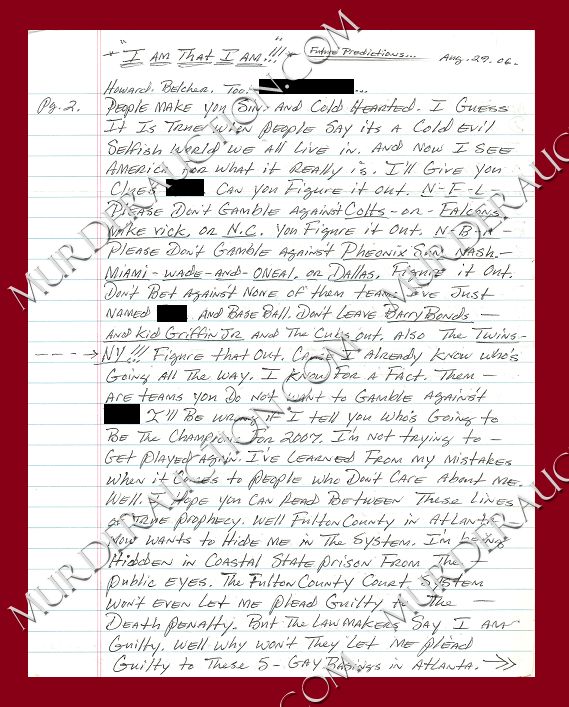 * "I AM THAT I AM"!!! * Future Predictions... Aug. 29. 06.
Howard. Belcher. Too: ...
Pg. 2. People Make you Sin. And Cold Hearted. I Guess
It Is True when People Say its A Cold Evil
Selfish World we All Live in. And Now I See
America For what it Really is. I'll Give you
Clues CAN you Figure it out. N-F-L-
Please Don't Gamble Against Colts-or-Falcons,
Mike Vick, or N.C. you Figure it Out. N-B-A-
Please Don't Gamble Against Pheonix Sun, Nash.-
Miami-Wade-And-Oneal, or Dallas, Figure it Out,
Don't Bet Against None of them teams I've Just
Named And Base Ball. Don't Leave Barry Bonds -
And Kid Griffin Jr And The Cubs out, Also The Twins-
----> NY!!! Figure that Out. Cause I Already Know who's
Going All The Way. I Know For A Fact. Them -
Are teams you Do Not want to Gamble Against
I'll Be wrong if I tell you Who's Going to
Be The Champions For 2007. I'm Not trying to -
Get Played Again. I've Learned From My Mistakes
when it Comes to People who Don't Care About Me.
Well. I Hope you Can Read Between These Lines
of True Prophecy. Well Fulton County in Atlanta
Now wants to Hide Me in The System. I'm Being
Hidden in Coastal State Prison From The -
Public Eyes. The Fulton County Court System
Won't Even Let Me Plead Guilty to The -
Death Penalty. But The Lawmakers Say I Am
Guilty. Well Why won't They Let Me Plead
Guilty to These 5-Gay Basings in Atlanta. ->>
MURDERAUCTION.COM